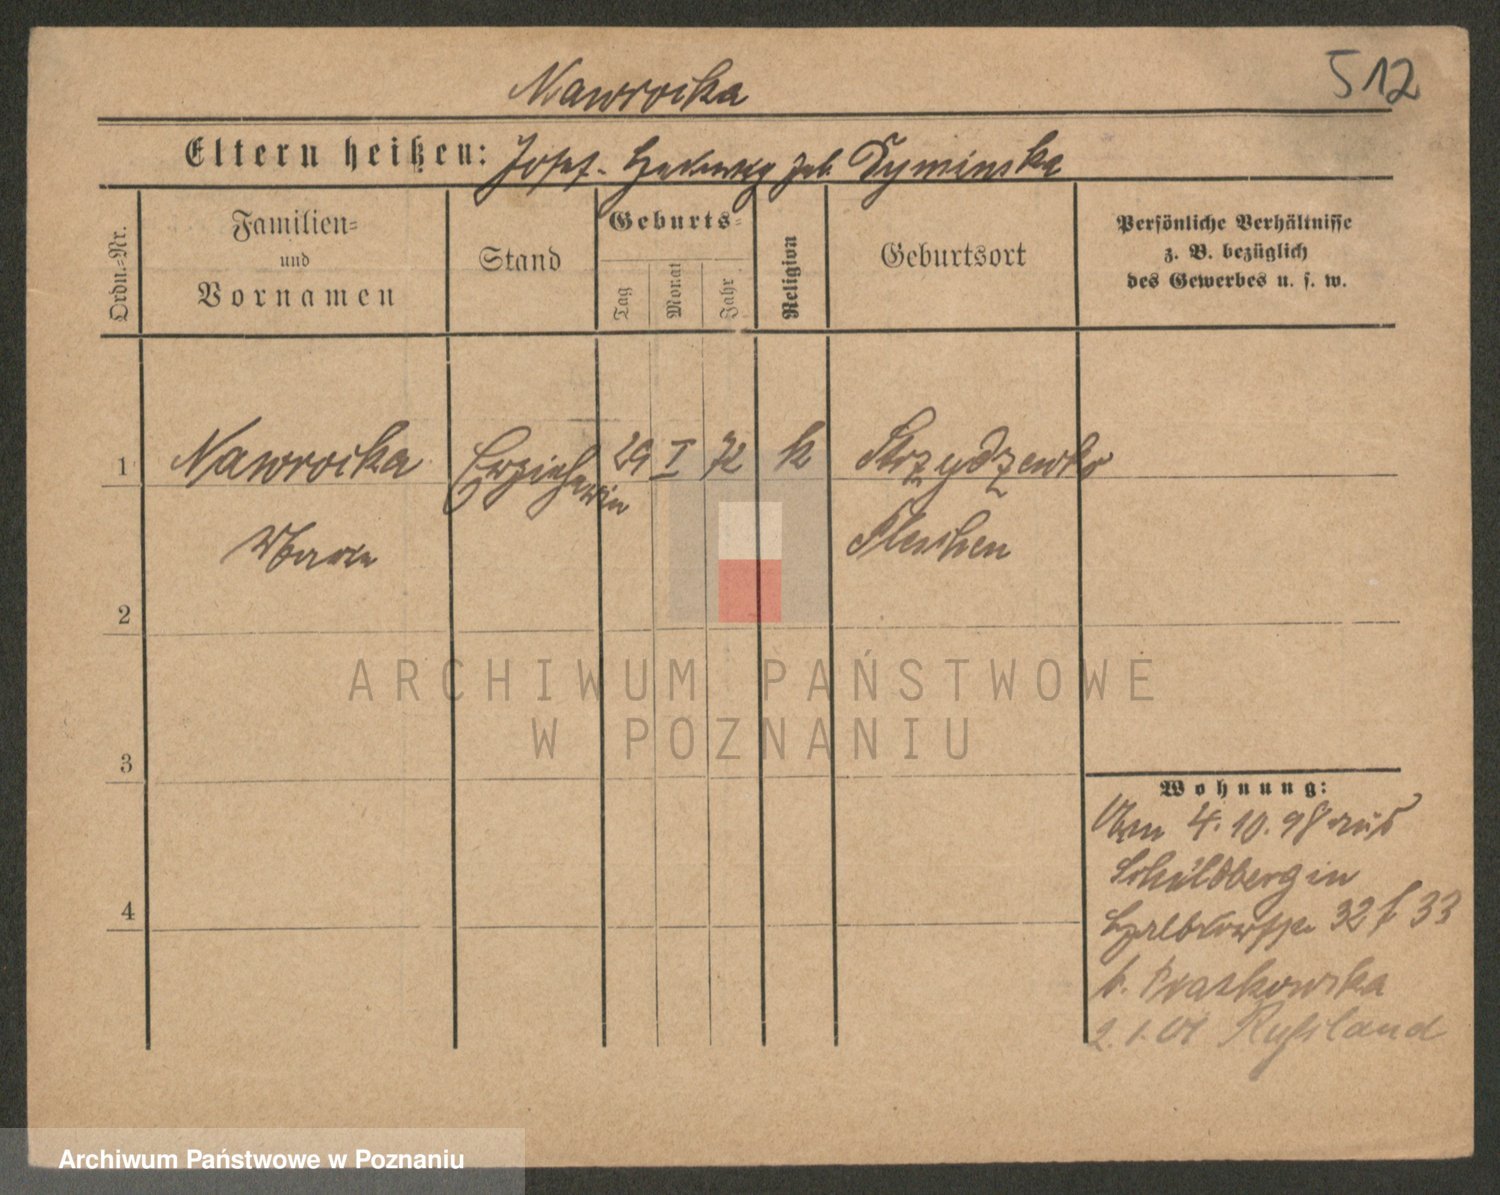 Nawrocka
512
Eltern heißen: Josef - Hedwig geb. Dyminska
Ordn.-Nr.
Familien-
und
Vornamen
Stand
Geburts-
Tag
Monat
Jahr
Religion
Geburtsort
Persönliche Verhältnisse
z. B. bezüglich
des Gewerbes u. s. w.
1 Nawrocka Erzieherin 29 I 72 k Strzydzewko
Marie Pleschen
2
ARCHIWUM PAŃSTWOWE
W POZNANIU
3
Wohnung:
Vom 4.10.98 aus
Schildberg in
Halbdorfstr. 32/33
b. Draskowska
2.1.01 Rußland
4
Archiwum Państwowe w Poznaniu